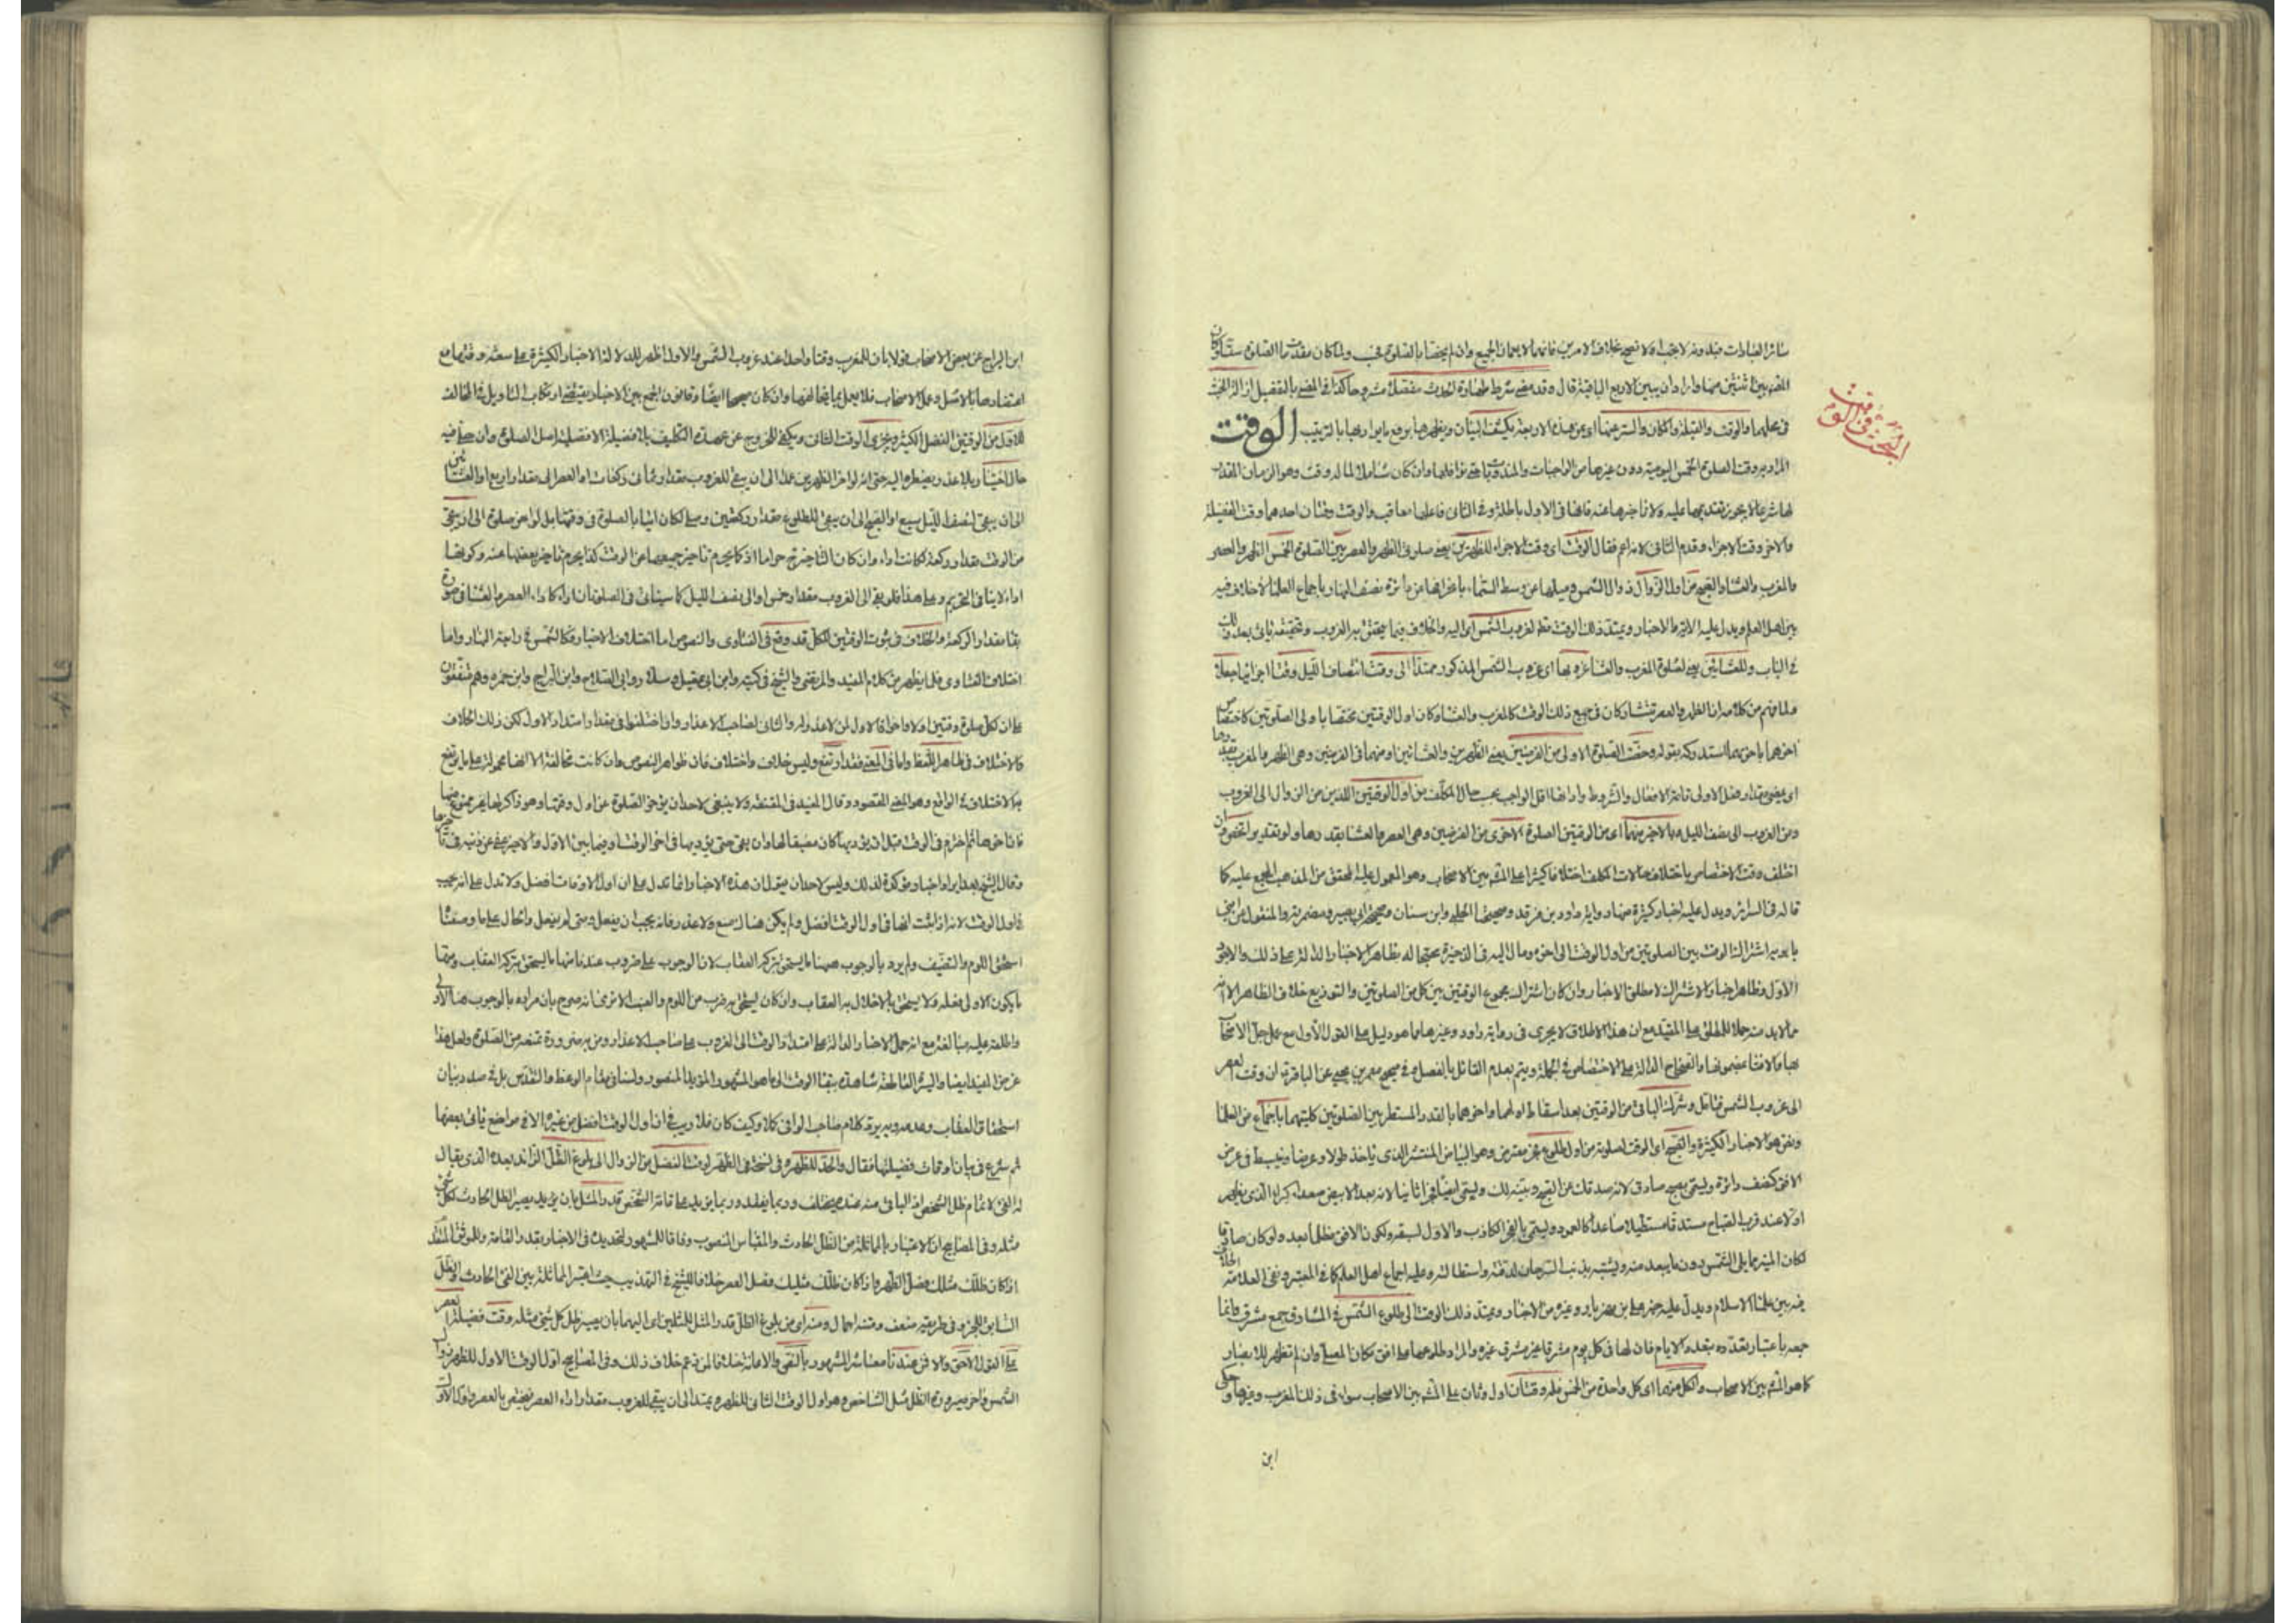 سائر العبادات فبدونه لا يجب ولا تصح بخلاف الامرين فانهما لا يعمان الجميع وان لم يختصا بالصلوة فحسب ولما كان مقدمات الصلوة ستا وكان
المهم بين اثنتين منها واراد ان يبين الاربع الباقية قال وقد مضى شرط طهارة الحدث مفصلا مشروحا كذا في المضى بالتفصيل ازالة الخبث
في محلهما والوقت والقبلة والمكان والستر عنهما اى عن هذه الاربعة يكشف البيان ويظهرها برفع ما يواريها بالترتيب الوقت
المراد به وقت الصلوة الخمس اليومية دون غيرها من الواجبات والمندوبات حتى نوافلها وان كان شاملا لما له وقت وهو الزمان المقدر
لها شرعا لا يجوز تقديمها عليه ولا تاخيرها عنه فانها في الاول باطلة وفي الثانى فاعلها معاقب والوقت وقتان احدهما وقت الفضيلة
والاخر وقت الاجزاء وقدم الثانى لانه اعم فقال الوقت اى وقت الاجزاء للظهرين يعنى صلوتى الظهر والعصر بين الصلوة الخمس الظهر والعصر
والمغرب والعشاء والصبح من اول الزوال زوال الشمس وميلها عن وسط السماء بانحرافها من دائرة نصف النهار باجماع العلماء لا خلاف فيه
بين اهل العلم ويدل عليه الآية والاخبار ويمتد ذلك الوقت منه لغروب الشمس اى اليه والخلاف فيما يتحقق به الغروب وتحقيقه ياتى بعد ذلك
في الباب وللعشائين يعنى لصلوة المغرب والعشاء غروبها اى غروب الشمس المذكور ممتدا الى وقت انتصاف الليل وقتا اجزائيا جعلا
ولما فهم من كلامه ان الظهر والعصر تتشاركان في جميع ذلك الوقت كالمغرب والعشاء وكان اول الوقتين مختصا باولى الصلوتين كاختصاص
آخرهما باخريهما استدركه بقوله وخصت الصلوة الاولى من الفرضين يعنى الظهرين والعشائين او منهما في الفرضين وهى الظهر والمغرب بقدرها
اى بمضى مقدار فعل الاولى تامة الافعال والشروط واراد بها اقل الواجب بحسب حال المكلف من اول الوقتين اللذين من الزوال الى الغروب
ومن الغروب الى نصف الليل والاخير منهما اى من الوقتين الصلوة الاخرى من الفرضين وهى العصر والعشاء بقدرها ولو تقديرا فخصوا وان
اختلف وقت الاختصاص باختلاف حالات المكلف اختلافا كثيرا على المشهور بين الاصحاب وهو المعمول عليه المحقق من المذهب المجمع عليه كما
قاله في السرائر ويدل عليه اخبار كثيرة منها رواية داود بن فرقد وصحيحتا الحلبى وابن سنان وصحيحة ابى بصير ومضمرته والمنقول عن ابنى
بابويه اشتراك الوقت بين الصلوتين من اول الوقت الى اخره ومال اليه في الذخيرة محتجا له بظاهر الاخبار الدالة على ذلك والاقوى
الاول وظاهر اخبار الاشتراك لاطلاق الاخبار وان كان اشتراك مجموع الوقتين بين كل من الصلوتين والتوزيع خلاف الظاهر الا انه
مما لا بد منه حملا للمطلق على المقيد مع ان هذا الاطلاق لا يجرى في رواية داود وغيرها مما هو دليل على القول الاول مع عمل جل الاصحاب
بها والافتاء بمضمونها والصحاح الدالة على الاختصاص في الجملة ويتم بعدم القائل بالفصل وفي صحيح معمر بن يحيى عن الباقر ان وقت العصر
الى غروب الشمس فتأمل وشرك الباقى من الوقتين بعد اسقاط اولهما واخرهما بالقدر المستطر بين الصلوتين كلتيهما باجماع من العلماء
ونص هو الاخبار الكثيرة والصبح اى الوقت لصلوته من اول طلوع فجر معترض وهو البياض المنتشر الذى ياخذ طولا وعرضا وينبسط في عرض
الافق كنصف دائرة ويسمى بصبح صادق لانه صدقك عن الصبح وبينه لك ويسمى ايضا فجرا ثانيا لانه بعد الابيض صعدا كبر الذى يظهر
اولا عند قرب الصباح مستدقا مستطيلا صاعدا كالعمود ويسمى بالفجر الكاذب والاول لسبقه ولكون الافق مظلما بعد ولو كان صادقا
لكان المنير مما يلى الشمس دون ما يبعد منه ويشبه بذنب السرحان لدقته واستطالته وعليه اجماع اهل العلم كما في المعتبر ونفى العلامة الخلاف
فيه بين علماء الاسلام ويدل عليه خبر على بن مهزيار وغيره من الاخبار ويمتد ذلك الوقت الى طلوع الشمس في المشارق جمع مشرق وانما
جمعه باعتبار تعدده بتعدد الايام فان لها في كل يوم مشرقا غير مشرق غيره والمراد طلوعها على افق مكان المصلى وان لم تظهر للابصار
كما هو المشهور بين الاصحاب ولكل منها اى كل واحدة من الخمس فله وقتان اول وثان على المشهور بين الاصحاب سواء في ذلك المغرب وغيرها وحكى
ابن
البحث في الوقت
ابن البراج عن بعض الاصحاب قولا بان للمغرب وقتا واحدا عند غروب الشمس والاول اظهر لدلالة الاخبار الكثيرة على سعة وقتها مع
اعتضادها بالاصل وعمل الاصحاب فلا يعمل بما يخالفها وان كان صحيحا ايضا وقانون الجمع بين الاخبار يقتضى ارتكاب التاويل في المخالف
للاول من الوقتين الفضل الكثير ويجزى الوقت الثانى ويكفى للخروج عن عهدة التكليف بالافضيلة الافضلية اصل الصلوة وان صلى فيه
حال اختيار وبلا عذر يضطره اليه حتى انه لو اخر الظهرين عمدا الى ان يبقى للغروب مقدار ثمانى ركعات او العصر الى مقدار اربع او العشائين
الى ان يبقى لنصف الليل سبع او الصبح الى ان يبقى للطلوع مقدار ركعتين وصلى لكان اتيا بالصلوة في وقتها بل لو اخر صلوة الى ان يبقى
من الوقت مقدار ركعة لكانت اداء وان كان التاخير حراما اذ كما يحرم تاخير جميعها عن الوقت كذا يحرم تاخير بعضها عنه وكونها
اداء لا ينافى التحريم وعلى هذا فلو بقى الى الغروب مقدار خمس او الى نصف الليل كما سياتى في الصلوتان اداء كاداء العصر والعشاء في صورة
بقاء مقدار الركعة والخلاف في ثبوت الوقتين لكل قد وقع في الفتاوى والنصوص اما اختلاف الاخبار فكالشمس في رابعة النهار واما
اختلاف الفتاوى فلما يظهر من كلام المفيد والمرتضى والشيخ في كتبه وابن ابى عقيل وسلار وابى الصلاح وابن البراج وابن حمزة وهم متفقون
على ان لكل صلوة وقتين اولا واخرا فالاول لمن لا عذر له والثانى لصاحب الاعذار وان اختلفوا في مقدار امتداد الاول لكن ذلك الخلاف
والاختلاف في ظاهر اللفظ واما في المعنى فقد ارتفع وليس خلاف واختلاف فان ظواهر النصوص وان كانت مخالفة الا انها محمولة على ما يرتفع
به الاختلاف في الواقع وهو المعنى المقصود وقال المفيد في المقنعة ولا ينبغى لاحد ان يؤخر الصلوة عن اول وقتها وهو ذاكر لها غير ممنوع منها
فان اخرها ثم اخترم في الوقت قبل ان يؤديها كان مضيعا لها وان بقى حتى يؤديها في اخر الوقت او فيما بين الاول والاخير عفى عن ذنبه في تاخيرها
وقال الشيخ بعد ايراد اخبار مؤكدة لذلك وليس لاحد ان يقول ان هذه الاخبار انما تدل على ان اول الاوقات افضل ولا تدل على انه يجب
في اول الوقت لانه اذا ثبت انها في اول الوقت افضل ولم يكن هناك منع ولا عذر فانه يجب ان يفعل ومتى لم يفعل والحال على ما وصفنا
استحق اللوم والتعنيف ولم يرد بالوجوب ههنا ما يستحق بتركه العقاب لان الوجوب على ضروب عندنا منها ما يستحق بتركه العقاب ومنها
ما يكون الاولى فعله ولا يستحق بالاخلال به العقاب وان كان يستحق به ضرب من اللوم والعتب الا ترى انه صرح بان مراده بالوجوب هنا الاولى
واطلقه عليه مبالغة مع انه حمل الاخبار الدالة على امتداد الوقت الى الغروب على صاحب الاعذار ومن به مرض وردة تمنعه من الصلوة ولعل هذا
غرض المفيد ايضا والسيرة القاطعة شاهدة ببقاء الوقت الى ما هو المشهور المؤيد المنصور ولسنا في مقام الوعظ والتقدس بل في صدد بيان
استحقاق العقاب وعدمه وبه يرتد كلام صاحب الوافى كلا وكيف كان فلا ريب في ان اول الوقت افضل من غيره الا في مواضع ياتى بعضها
ثم شرع في بيان اوقات فضيلتها فقال والحد للظهر وفى نسخة في الظهر لوقت الفضل من الزوال الى بلوغ الظل الزائد بعده الذى يقال
له الفىء لا تمام ظل الشخص اذ الباقى منه عنده مختلف وربما يفقد وربما يزيد على قامة الشخص قدر المثل بان يزيد يصير الظل الحادث لكل شىء
مثله وفى المصابيح ان الاعتبار بالمماثلة من الظل الحادث والمقياس المنصوب وفاقا للمشهور لتحديد في الاخبار بقدر القامة والموثق المتقدم
اذا كان ظلك مثلك فصل الظهر واذا كان ظلك مثليك فصل العصر خلافا للشيخ في التهذيب حيث اعتبر المماثلة بين الفىء الحادث والظل
السابق للخبر وفى طريقه ضعف ومتنه اجمال ومنه اى من بلوغ الظل قدر المثل للمثلين اى اليهما بان يصير ظل كل شىء مثليه وقت فضيلة العصر
على القول الاحق والاقرب عندنا معاشر المشهور بالفىء والاعانة خلافا لمن زعم خلاف ذلك وفى المصابيح اول الوقت الاول للظهر زوال
الشمس واخره صيرورة الظل مثل الشاخص وهو اول الوقت الثانى للظهر ويمتد الى ان يبقى للغروب مقدار اداء العصر فيختص بالعصر واول الاول